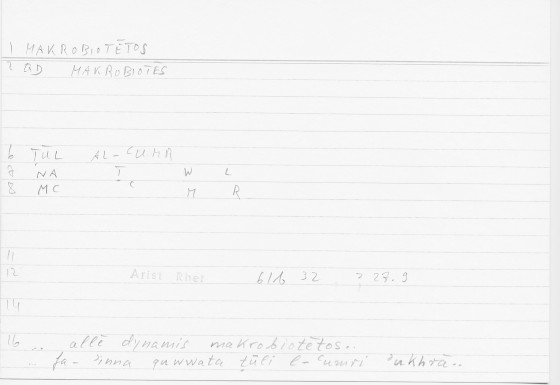 1 MAKROBIOTĒTOS
2 QD MAKROBIOTĒS
6 ṬŪL AL-ʿUMR
7 NA Ṭ W L
8 MC ʿ M R
11
12 Arist Rhet 61b 32 27.9
14
16 .. allē dynamis makrobiotētos..
.. fa-ʾinna quwwata ṭūli l-ʿumri ʾukhrā..